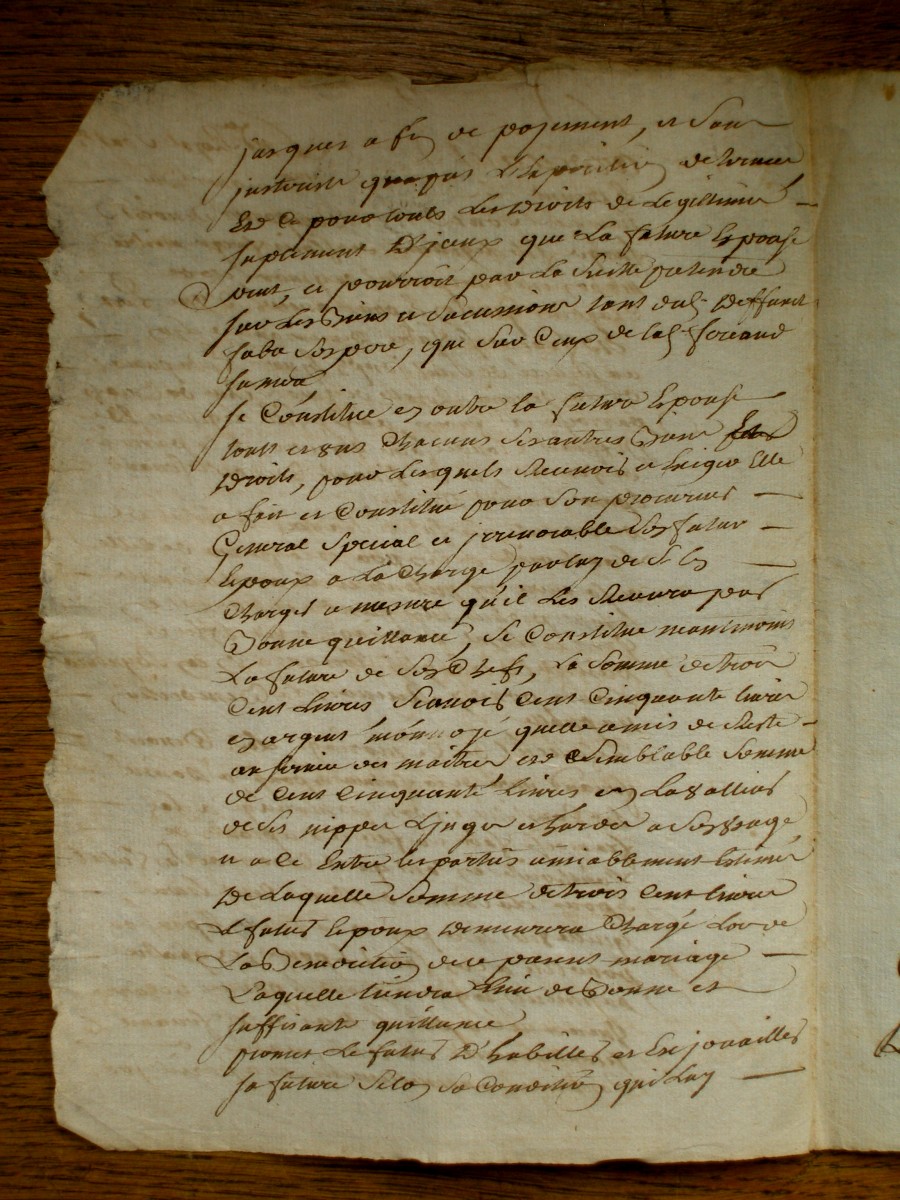 jusques a fin de payement, et sans
quapres L'expiration
Et ce pour touts Les droits de Legitime —
suplement D'jceux que La future Epouse
peut, et pourroit par La suitte pretendre
sur Les Biens et successions tant dud. deffunct
faba son pere, que sur Ceux de lad. feriand
sa mere
se Constitue en outre la future Epouse
touts et uns Chacuns ses autres Biens
Droits, pour Lesquels Recevoir et Exiger Elle
a fait et Constitué pour son procureur —
General special et jrrevocable son futur —
Epoux a La Charge par luy de —
Charger a mesure qu'il Les Recevra par
Bonne quittance, se Constitue neantmoins
La future de son Chef, La somme de trois
Cent Livres scavoir Cent Cinquante livres
en argent monnoyé quelle a mis de Reste —
au service des maitres et semblable somme
de Cent Cinquante Livres en La valleur
de ses nippes Linges et hardes a son usage,
a ce Entre les parties amiablement Estimés
De Laquelle somme de trois Cent livres
Le futur Epoux demeurera Chargé Lors de
La Benediction de ce present mariage —
Laquelle tiendra lieu de Bonne et
suffisante quittance
promet Le futur D'habiller et Enjouailler
sa future selon sa Condition qui Luy —